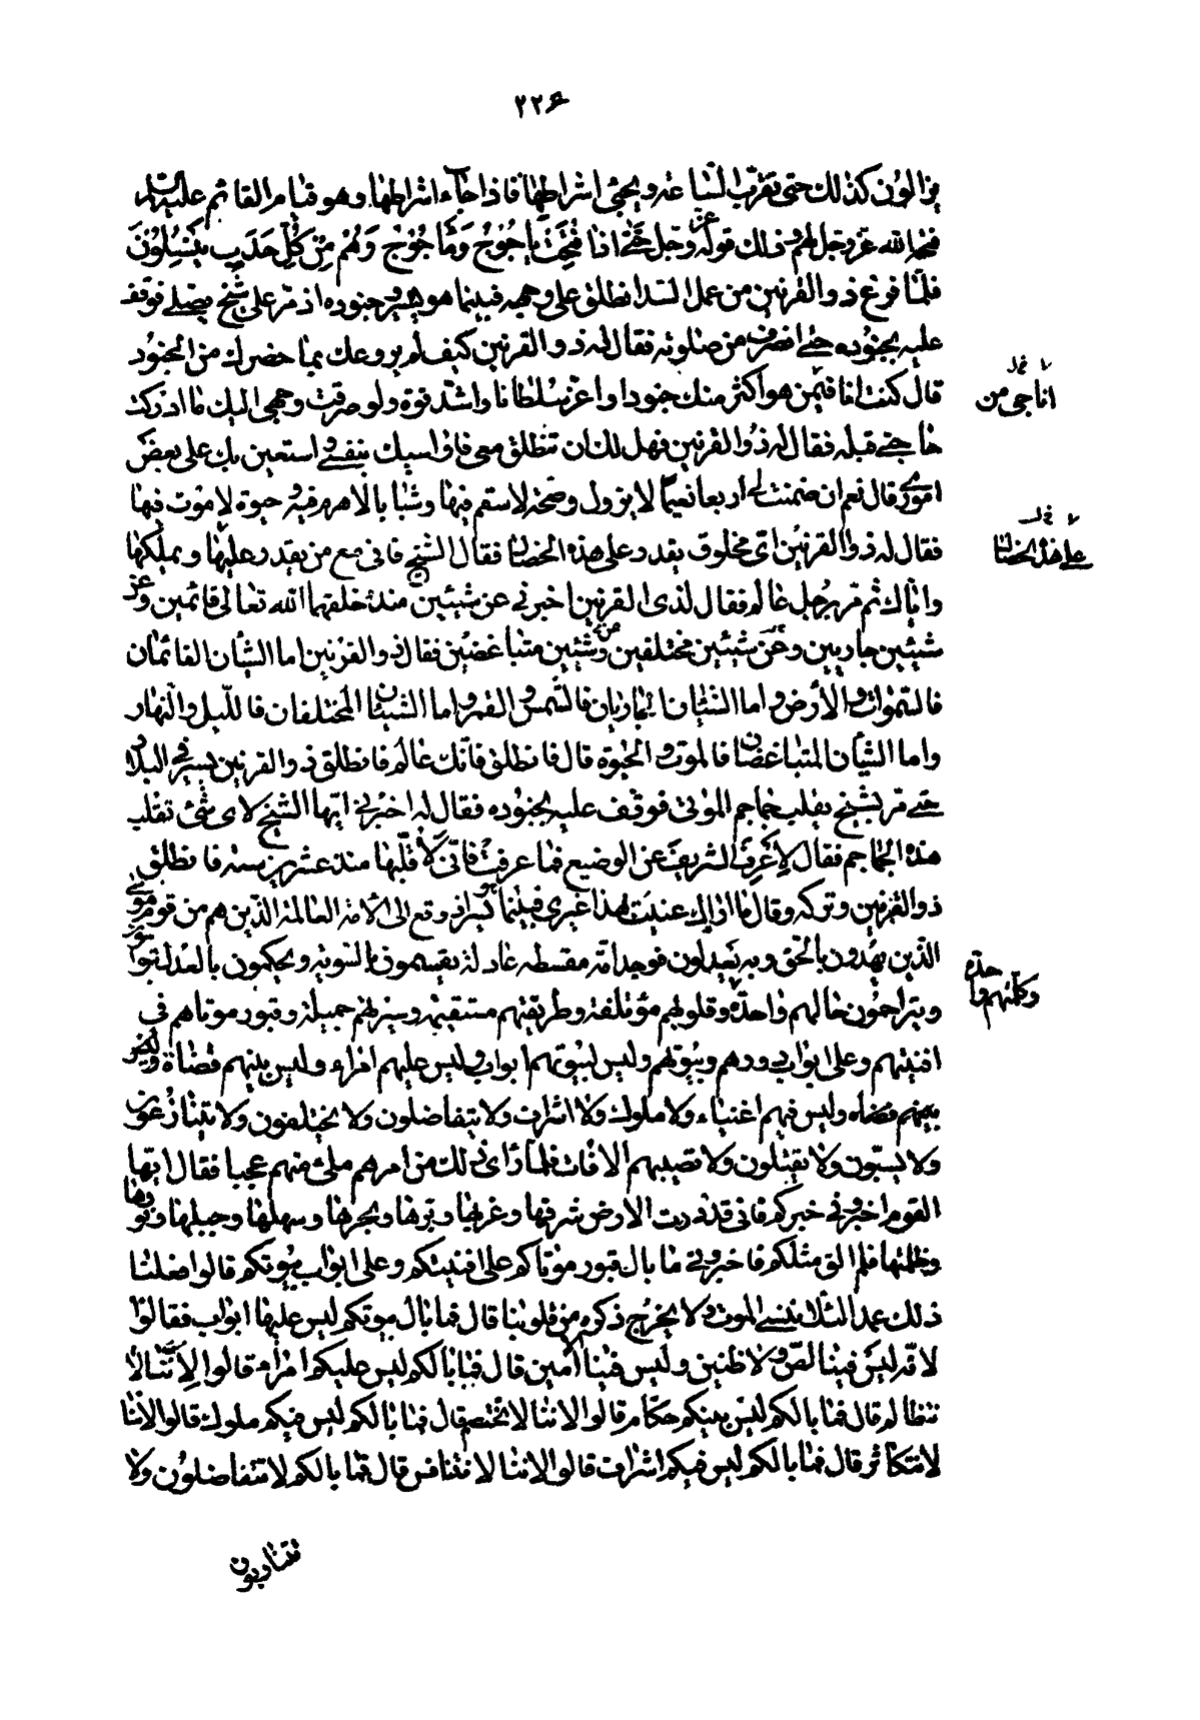 ۲۲۶
يزالون كذلك حتى تقرب الساعة ويجئ اشراطها فاذا جاء اشراطها وهو قيام القائم عليه السلام
فتحها الله عز وجل لهم وذلك قوله عز وجل حتى اذا فتحت يأجوج ومأجوج وهم من كل حدب ينسلون
فلما فرغ ذو القرنين من عمل السد انطلق على وجهه فبينما هو يسير وجنوده اذ مر على شيخ يصلى فوقف
عليه بجنوده حتى انصرف من صلوته فقال له ذو القرنين كيف لم يروعك ما حضرك من الجنود
قال كنت اناجى من هو اكثر منك جنودا واعز سلطانا واشد قوة ولو صرفت وجهى اليك ما ادركت
حاجتى قبله فقال له ذو القرنين فهل لك ان تنطلق معى فاواسيك بنفسى واستعين بك على بعض
امورى قال نعم ان ضمنت لى اربعا نعيما لا يزول وصحة لا سقم فيها وشبابا لا هرم فيه وحيوة لا موت فيها
فقال له ذو القرنين اى مخلوق يقدر على هذه الخصال فقال الشيخ فانى مع من يقدر عليها ويملكها
واياك ثم مر برجل عالم فقال لذى القرنين اخبرنى عن شيئين منذ خلقهما الله تعالى قائمين وعن
شيئين جاريين وعن شيئين مختلفين وشيئين متباغضين فقال ذو القرنين اما الشيئان القائمان
فالسموات والارض واما الشيئان الجاريان فالشمس والقمر واما الشيئان المختلفان فالليل والنهار
واما الشيئان المتباغضان فالموت والحيوة قال فانطلق فانك عالم فانطلق ذو القرنين يسير فى البلاد
حتى مر بشيخ يقلب جماجم الموتى فوقف عليه بجنوده فقال له اخبرنى ايها الشيخ لاى شئ تقلب
هذه الجماجم فقال لاعرف الشريف عن الوضيع فما عرفت فانى لاقلبها منذ عشرين سنة فانطلق
ذو القرنين وتركه وقال ما اراك عنيت بهذا غيرى فبينما هو يسير اذ وقع الى الامة العالمة الذين هم من قوم موسى
الذين يهدون بالحق وبه يعدلون فوجد امة مقسطة عادلة يقسمون بالسوية ويحكمون بالعدل ويتواسون
ويتراحمون حالهم واحدة وقلوبهم مؤتلفة وطريقتهم مستقيمة وسيرتهم جميلة وقبور موتاهم فى
افنيتهم وعلى ابواب دورهم وبيوتهم وليس لبيوتهم ابواب وليس عليهم امراء وليس بينهم قضاة وليس
بينهم قضاة وليس فيهم اغنياء ولا ملوك ولا اشراف ولا يتفاضلون ولا يختلفون ولا يتنازعون
ولا يستبون ولا يقتتلون ولا تصيبهم الافات فلما راى ذلك من امرهم ملئ منهم عجبا فقال ايها
القوم اخبرونى خبركم فانى قد درت الارض شرقها وغربها وبرها وبحرها وسهلها وجبلها ونورها
وظلمتها فلم الق مثلكم فاخبرونى ما بال قبور موتاكم على افنيتكم وعلى ابواب بيوتكم قالوا فعلنا
ذلك عمدا لئلا ننسى الموت ولا يخرج ذكره من قلوبنا قال فما بال بيوتكم ليس عليها ابواب فقالوا
لانه ليس فينا لص ولا ظنين وليس فينا الا امين قال فما بالكم ليس عليكم امراء قالوا لاننا لا
نتظالم قال فما بالكم ليس بينكم حكام قالوا لاننا لا نختصم قال فما بالكم ليس فيكم ملوك قالوا لاننا
لا نتكاثر قال فما بالكم ليس فيكم اشراف قالوا لاننا لا نتنافس قال فما بالكم لا تتفاضلون ولا
اناجى من
على هذه الخصال
وكلمتهم واحدة
تتفاوتون